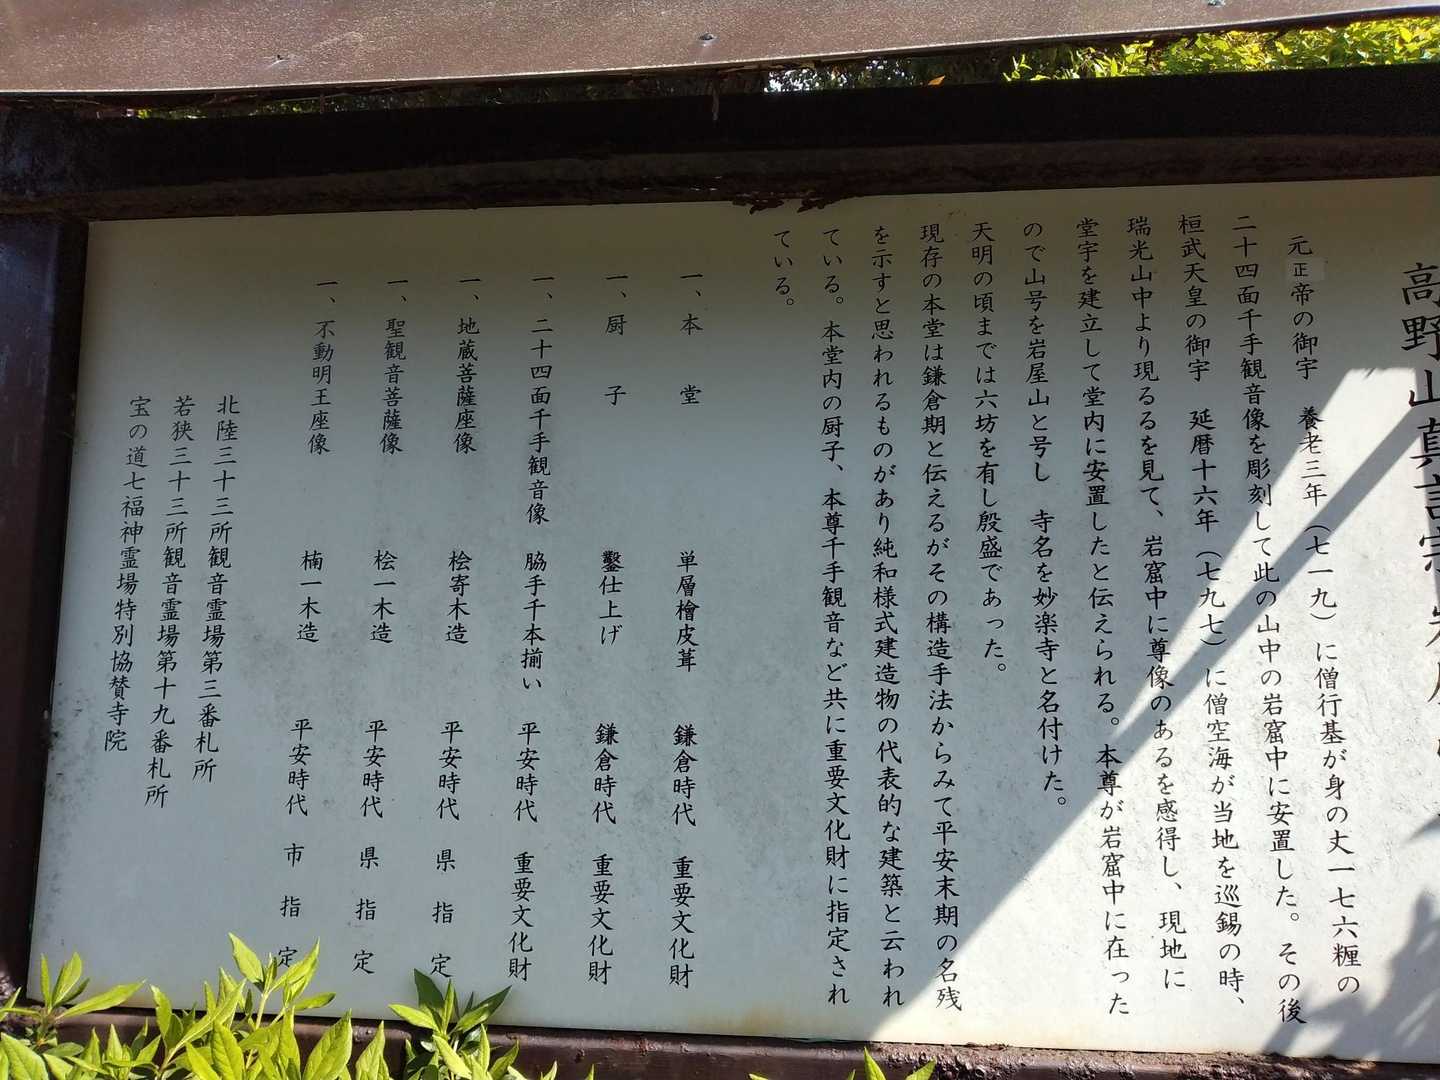 高野山真言宗
元正帝の御宇　養老三年（七一九）に僧行基が身の丈一七六糎の
二十四面千手観音像を彫刻して此の山中の岩窟中に安置した。その後
桓武天皇の御宇　延暦十六年（七九七）に僧空海が当地を巡錫の時、
瑞光山中より現るるを見て、岩窟中に尊像のあるを感得し、現地に
堂宇を建立して堂内に安置したと伝えられる。本尊が岩窟中に在った
ので山号を岩屋山と号し　寺名を妙楽寺と名付けた。
天明の頃までは六坊を有し殷盛であった。
現存の本堂は鎌倉期と伝えるがその構造手法からみて平安末期の名残
を示すと思われるものがあり純和様式建造物の代表的な建築と云われ
ている。本堂内の厨子、本尊千手観音など共に重要文化財に指定され
ている。
一、本堂　単層檜皮葺　鎌倉時代　重要文化財
一、厨子　鑿仕上げ　鎌倉時代　重要文化財
一、二十四面千手観音像　脇手千本揃い　平安時代　重要文化財
一、地蔵菩薩座像　桧寄木造　平安時代　県指定
一、聖観音菩薩像　桧一木造　平安時代　県指定
一、不動明王座像　楠一木造　平安時代　市指定
北陸三十三所観音霊場第三番札所
若狭三十三所観音霊場第十九番札所
宝の道七福神霊場特別協賛寺院